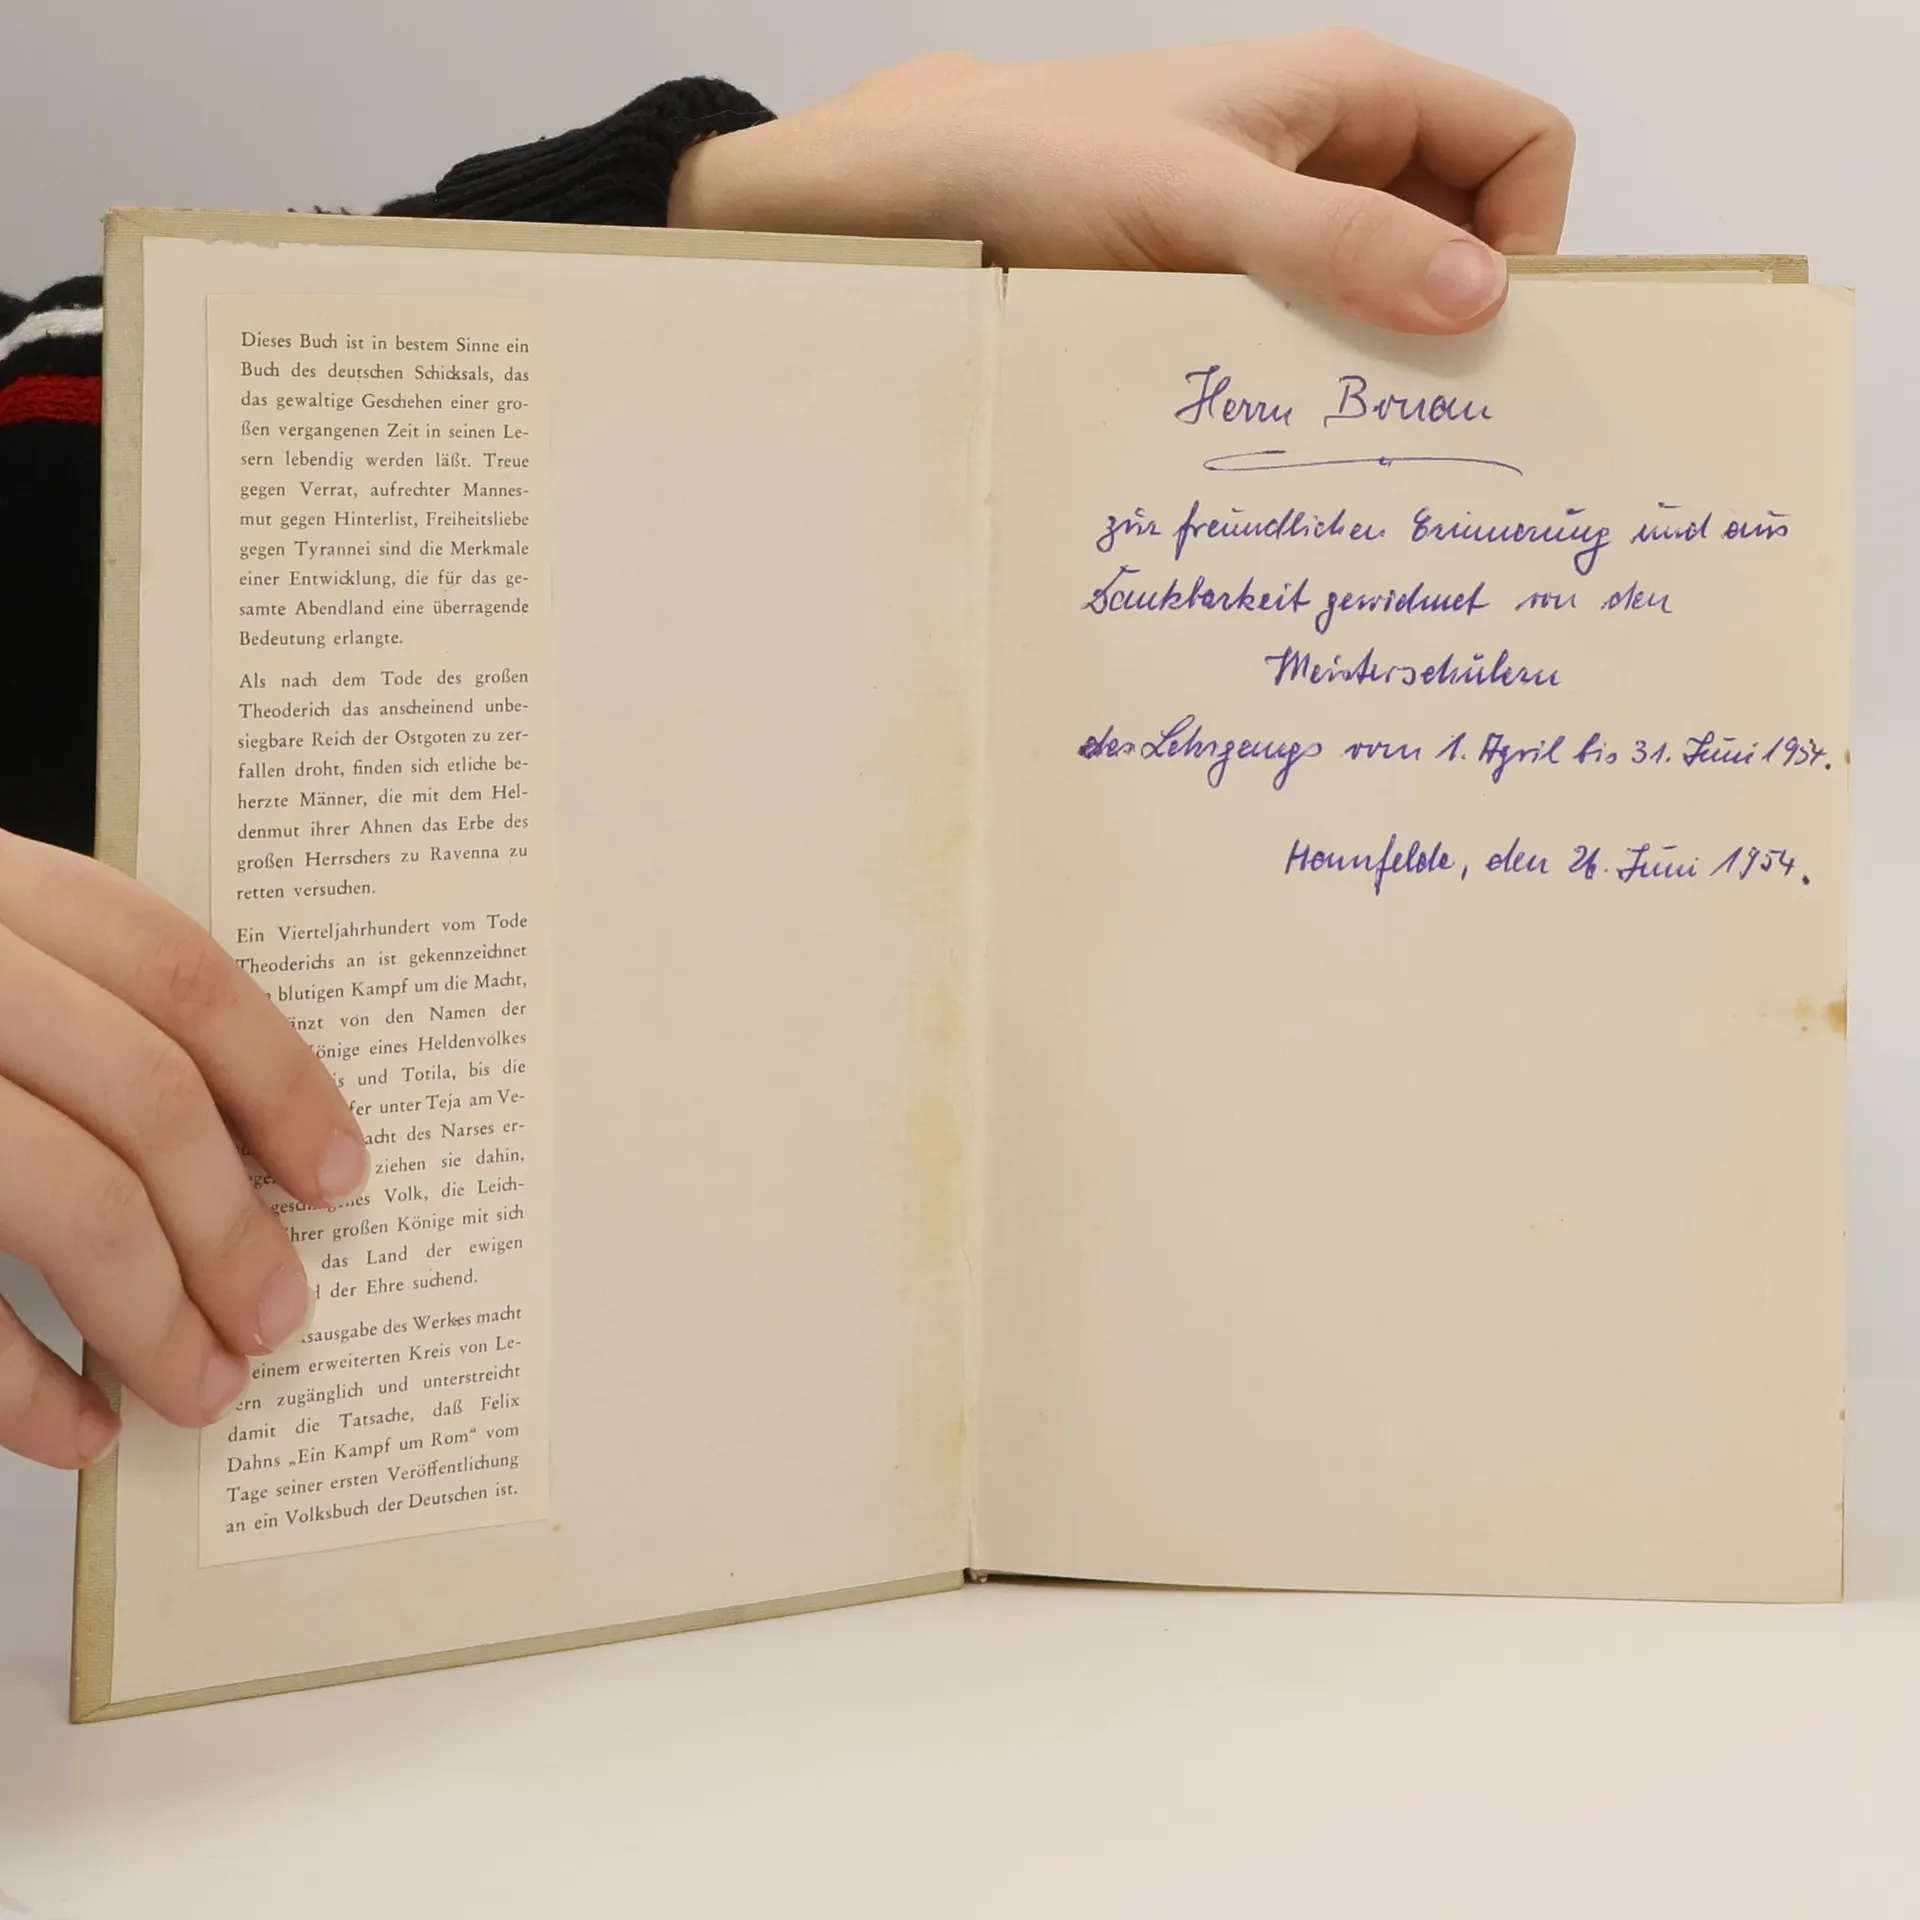 Dieses Buch ist in bestem Sinne ein
Buch des deutschen Schicksals, das
das gewaltige Geschehen einer gro-
ßen vergangenen Zeit in seinen Le-
sern lebendig werden läßt. Treue
gegen Verrat, aufrechter Mannes-
mut gegen Hinterlist, Freiheitsliebe
gegen Tyrannei sind die Merkmale
einer Entwicklung, die für das ge-
samte Abendland eine überragende
Bedeutung erlangte.
Als nach dem Tode des großen
Theoderich das anscheinend unbe-
siegbare Reich der Ostgoten zu zer-
fallen droht, finden sich etliche be-
herzte Männer, die mit dem Hel-
denmut ihrer Ahnen das Erbe des
großen Herrschers zu Ravenna zu
retten versuchen.
Ein Vierteljahrhundert vom Tode
Theoderichs an ist gekennzeichnet
blutigen Kampf um die Macht,
von den Namen der
Könige eines Heldenvolkes
und Totila, bis die
unter Teja am Ve-
des Narses er-
ziehen sie dahin,
Volk, die Leich-
ihrer großen Könige mit sich
das Land der ewigen
der Ehre suchend.
des Werkes macht
einem erweiterten Kreis von Le-
ern zugänglich und unterstreicht
damit die Tatsache, daß Felix
Dahns „Ein Kampf um Rom“ vom
Tage seiner ersten Veröffentlichung
an ein Volksbuch der Deutschen ist.
Herrn
zur freundlichen Erinnerung und aus
Dankbarkeit gewidmet von den
Meisterschülern
des Lehrgangs vom 1. April bis 31. Juni 1954.
den 26. Juni 1954.